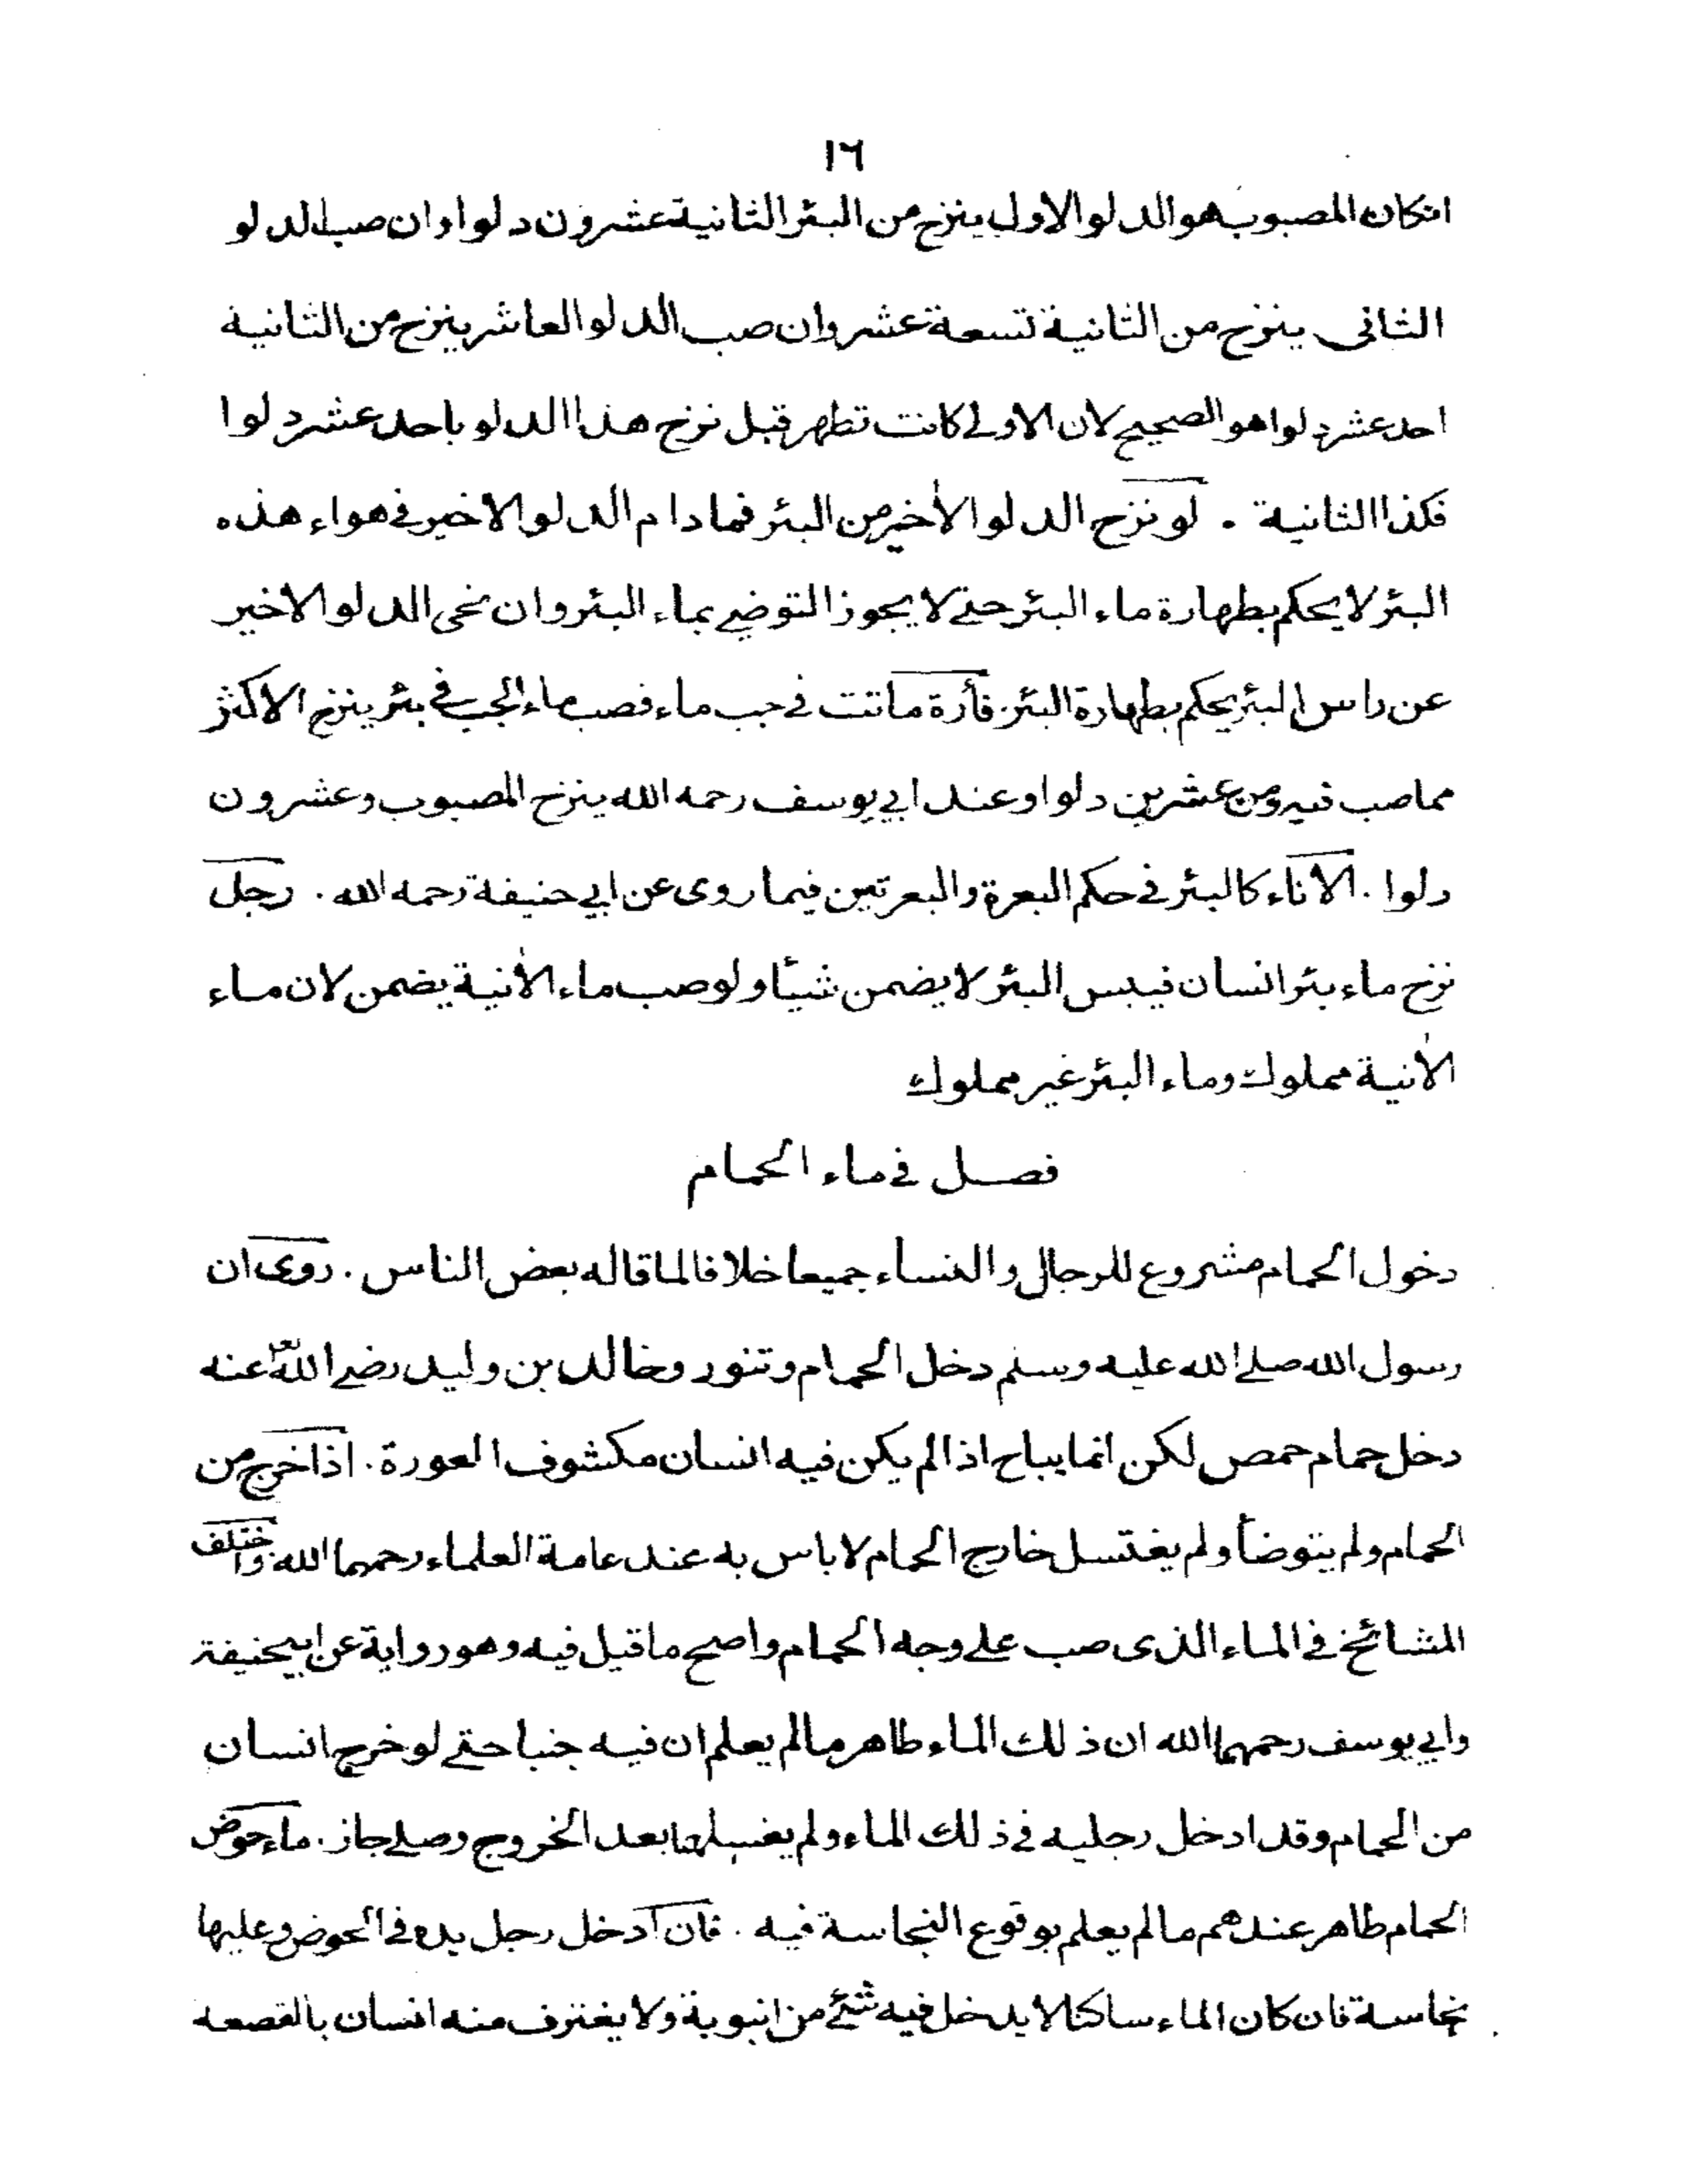 ١٦
انكان المصبوب هو الدلو الاول ينزح من البئر الثانية عشرون دلوا وان صب الدلو
الثانى ينزح من الثانية تسعة عشر وان صب الدلو العاشر ينزح من الثانية
احد عشر دلوا هو الصحيح لان الاولى كانت تطهر قبل نزح هذا الدلو باحد عشر دلوا
فكذا الثانية . لو نزح الدلو الأخير من البئر فما دام الدلو الاخير فى هواء هذه
البئر لا يحكم بطهارة ماء البئر حتى لا يجوز التوضى بماء البئر وان نحى الدلو الاخير
عن راس البئر يحكم بطهارة البئر. فأرة ماتت فى حب ماء فصب ماء الحب فى بئر ينزح الاكثر
مما صب فيه ومن عشرين دلوا وعند ابي يوسف رحمه الله ينزح المصبوب وعشرون
دلوا . الاناء كالبئر فى حكم البعرة والبعرتين فيما روى عن ابي حنيفة رحمه الله . رجل
نزح ماء بئر انسان فيبس البئر لا يضمن شيئا ولو صب ماء الأنية يضمن لان ماء
الأنية مملوك وماء البئر غير مملوك
فصل فى ماء الحمام
دخول الحمام مشروع للرجال والنساء جميعا خلافا لما قاله بعض الناس . روى ان
رسول الله صلى الله عليه وسلم دخل الحمام وتنور وخالد بن وليد رضى الله تعا عنه
دخل حمام حمص لكن انما يباح اذا لم يكن فيه انسان مكشوف العورة . اذا خرج من
الحمام ولم يتوضأ ولم يغتسل خارج الحمام لا باس به عند عامة العلماء رحمهما الله واختلف
المشائخ فى الماء الذى صب على وجه الحمام واصح ما قيل فيه وهو رواية عن ابيحنيفة
وابي يوسف رحمهما الله ان ذلك الماء طاهر ما لم يعلم ان فيه جنبا حتى لو خرج انسان
من الحمام وقد ادخل رجليه فى ذلك الماء ولم يغسلهما بعد الخروج وصلى جاز . ماء حوض
الحمام طاهر عندهم ما لم يعلم بوقوع النجاسة فيه . فان ادخل رجل يده فى الحوض وعليها
نجاسة فان كان الماء ساكنا لا يدخل فيه شئ من انبوبة ولا يغترف منه انسان بالقصعه